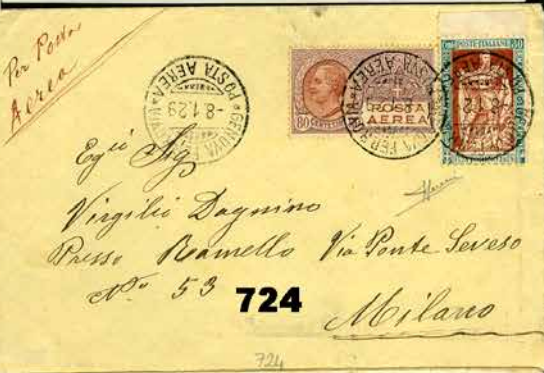 Per Posta
Aerea
GENOVA
POSTA AEREA
-8.1.29
80 CENTESIMI
POSTA
AEREA
POSTE ITALIANE
Egr Sig
Virgilio Dagnino
Presso Ramello Via Ponte Seveso
No 53
724
Milano
724